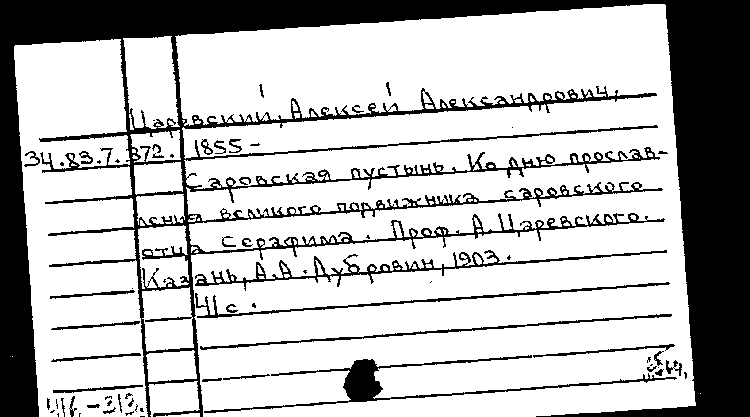 Царевский, Алексей Александрович,
34.83.7.372. 1855 –
Саровская пустынь. Ко дню прослав-
ления великого подвижника саровского
отца Серафима. Проф. А. Царевского.
Казань, А.А. Дубровин, 1903.
41 с.
416. – 313.